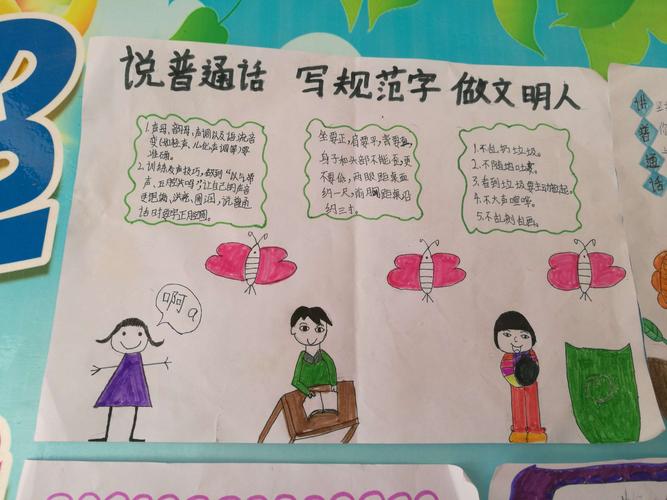 说普通话 写规范字 做文明人
1.声母、韵母、声调以及语流音
变(如轻声、儿化声调等)要
准确。
2.训练发声技巧,做到"以气带
声、
让自己的声音
更饱满、洪亮、圆润,说普通
话时字正腔圆。
坐要正,肩要平,背要直,
身子和头部不能歪,更
不要低,两眼距桌面
约一尺,前胸距桌沿
约三寸。
1.不乱扔垃圾。
2.不随地吐痰。
3.看到垃圾要主动捡起。
4.不大声喧哗。
5.不乱刻乱画。
啊 a
讲
普
通
话